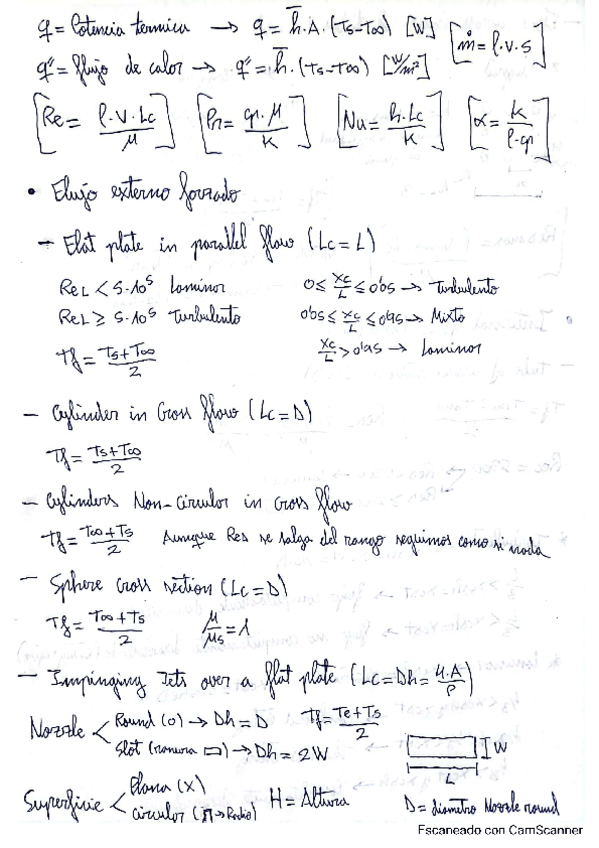 q = Potencia termica → q = h̅.A.(Ts-T∞) [W] [ṁ = ρ.v.s]
q" = flujo de calor → q" = h̅.(Ts-T∞) [W/m²]
[Re = ρ.v.Lc/μ] [Pr = cp.μ/K] [Nu = h.Lc/K] [α = K/ρ.cp]
• Flujo externo forzado
- Flat plate in parallel flow (Lc = L)
ReL < 5.10⁵ Laminar 0 ≤ xc/L ≤ 0'05 → Turbulento
ReL ≥ 5.10⁵ Turbulento 0'05 ≤ xc/L ≤ 0'95 → Mixto
Tf = Ts+T∞/2 xc/L > 0'95 → Laminar
- Cylinder in Cross flow (Lc = D)
Tf = Ts+T∞/2
- Cylinders Non-Circular in cross flow
Tf = T∞+Ts/2 Aunque Res se salga del rango seguimos como si nada
- Sphere cross section (Lc = D)
Tf = T∞+Ts/2 μ/μs = 1
- Impinging Jets over a flat plate (Lc = Dh = 4.A/P)
Nozzle < Round (O) → Dh = D Tf = Te+Ts/2
Slot (ranura ▭) → Dh = 2W W
L
Superficie < Plana (X) H = Altura D = diametro Nozzle round
Circular (r → Radio)
Escaneado con CamScanner